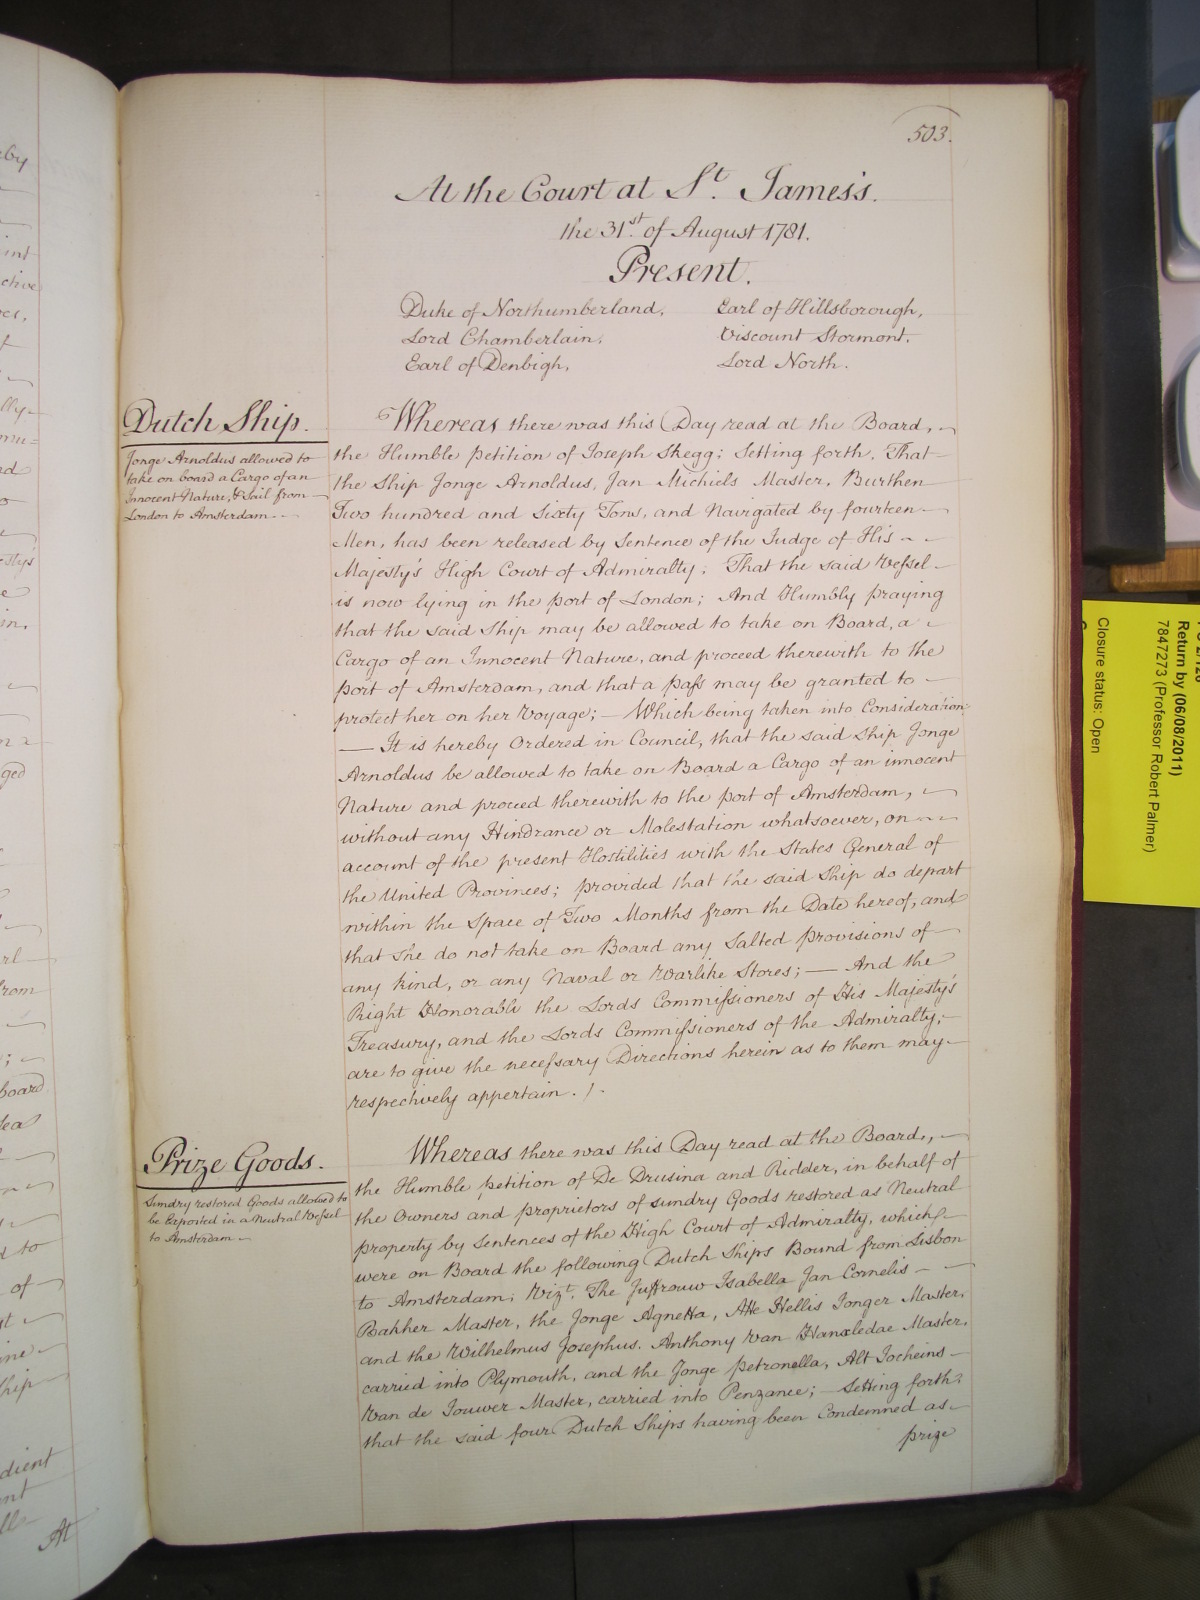 503.
At the Court at St. James's.
the 31st. of August 1781.
Present.
Duke of Northumberland, Earl of Hillsborough,
Lord Chamberlain, Viscount Stormont,
Earl of Denbigh, Lord North.
Dutch Ship.
Jonge Arnoldus allowed to
take on board a Cargo of an
Innocent Nature, & Sail from
London to Amsterdam
Whereas there was this Day read at the Board,
the Humble petition of Joseph Skegg; Setting forth, That
the Ship Jonge Arnoldus, Jan Michiels Master, Burthen
Two hundred and Sixty Tons, and Navigated by fourteen
Men, has been released by Sentence of the Judge of His
Majesty's High Court of Admiralty; That the said Vessel
is now lying in the port of London; And Humbly praying
that the said Ship may be allowed to take on Board, a
Cargo of an Innocent Nature, and proceed therewith to the
port of Amsterdam, and that a pass may be granted to
protect her on her Voyage; — Which being taken into Consideration
— It is hereby Ordered in Council, that the said Ship Jonge
Arnoldus be allowed to take on Board a Cargo of an innocent
Nature and proceed therewith to the port of Amsterdam,
without any Hindrance or Molestation whatsoever, on
account of the present Hostilities with the States General of
the United Provinces; provided that the said Ship do depart
within the Space of Two Months from the Date hereof, and
that She do not take on Board any Salted provisions of
any kind, or any Naval or Warlike Stores; — And the
Right Honorable the Lords Commissioners of His Majesty's
Treasury, and the Lords Commissioners of the Admiralty,
are to give the necessary Directions herein as to them may
respectively appertain. /.
Prize Goods.
Sundry restored Goods allowed to
be Exported in a Neutral Vessel
to Amsterdam
Whereas there was this Day read at the Board,
the Humble petition of De Drusina and Ridder, in behalf of
the Owners and proprietors of sundry Goods restored as Neutral
property by Sentences of the High Court of Admiralty, which
were on Board the following Dutch Ships Bound from Lisbon
to Amsterdam; Vizt. The Juffrouw Isabella Jan Cornelis
Bakker Master, the Jonge Agnetta, Atte Hellis Jonger Master,
and the Wilhelmus Josephus, Anthony Van Master,
carried into Plymouth, and the Jonge Petronella, Alt Jocheins
Van de Jouwer Master, carried into Penzance; — Setting forth,
that the said four Dutch Ships having been Condemned as
prize
At
Return by (06/08/2011)
7847273 (Professor Robert Palmer)
Closure status: Open